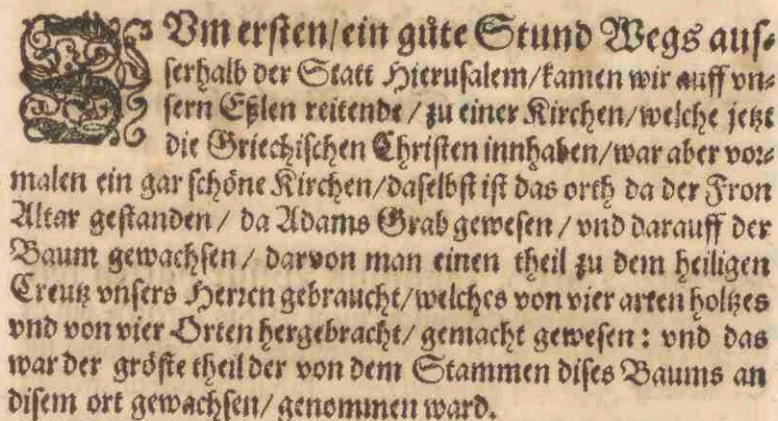 ZUm ersten/ein gůte Stund Wegs aus-
serhalb der Statt Hierusalem/kamen wir auff vn-
sern Eßlen reitende/zu einer Kirchen/welche jetzt
die Griechischen Christen innhaben/war aber vor-
malen ein gar schöne Kirchen/daselbst ist das orth da der Fron
Altar gestanden/da Adams Grab gewesen/vnd darauff der
Baum gewachsen/darvon man einen theil zu dem heiligen
Creutz vnsers Herren gebraucht/welches von vier arten holtzes
vnd von vier Orten hergebracht/gemacht gewesen: vnd das
war der gröste theil der von dem Stammen dises Baums an
disem ort gewachsen/genommen ward.